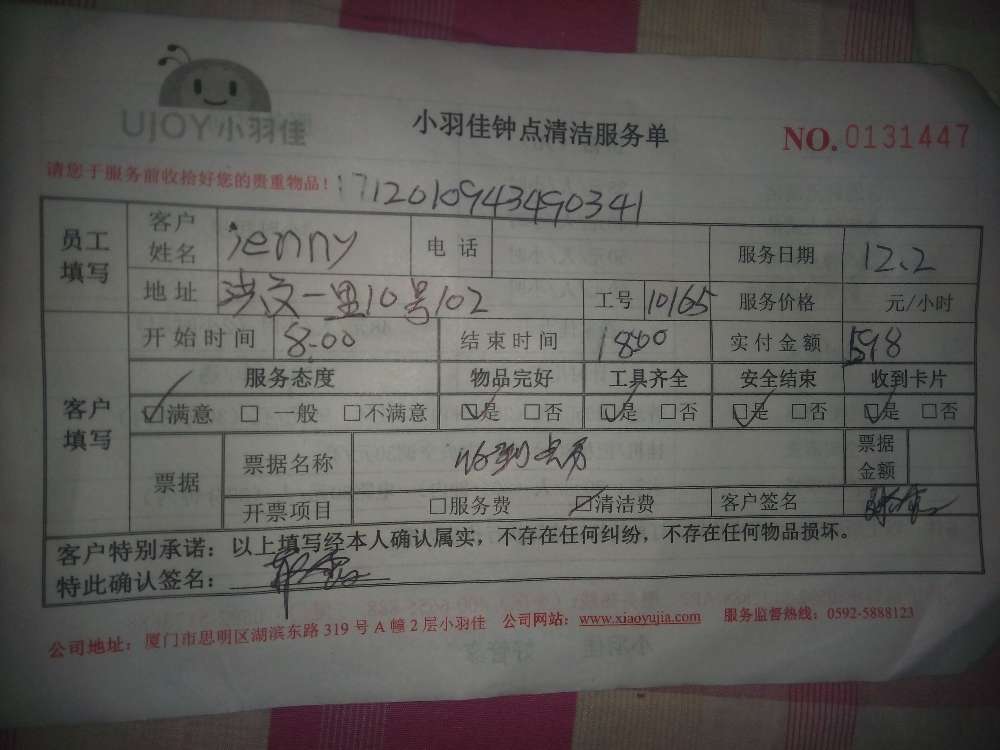 UJOY小羽佳
小羽佳钟点清洁服务单
NO.0131447
请您于服务前收拾好您的贵重物品！
1712010943490341
员工填写 客户姓名 jenny 电话 服务日期 12.2
地址 洪文一里10号102 工号 10165 服务价格 元/小时
客户填写 开始时间 8:00 结束时间 18:00 实付金额 598
服务态度 物品完好 工具齐全 安全结束 收到卡片
☑满意 □一般 □不满意 ☑是 □否 ☑是 □否 ☑是 □否 ☑是 □否
票据 票据名称 票据金额
开票项目 □服务费 ☑清洁费 客户签名
客户特别承诺：以上填写经本人确认属实，不存在任何纠纷，不存在任何物品损坏。
特此确认签名：
公司地址：厦门市思明区湖滨东路 319 号 A 幢 2 层小羽佳 公司网站：www.xiaoyujia.com 服务监督热线：0592-5888123